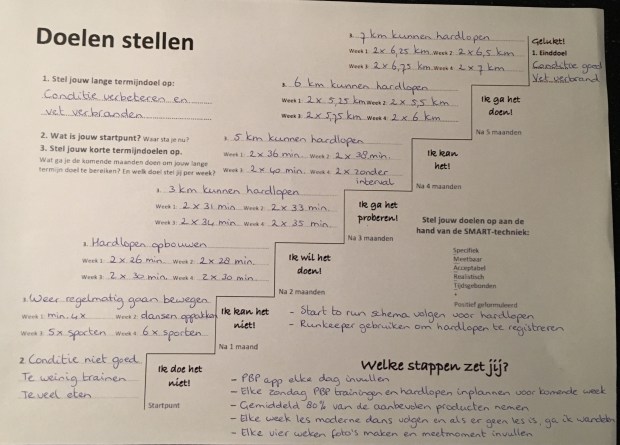 Doelen stellen
1. Stel jouw lange termijndoel op:
Conditie verbeteren en
vet verbranden
2. Wat is jouw startpunt? Waar sta je nu?
3. Stel jouw korte termijndoelen op.
Wat ga je de komende maanden doen om jouw lange
termijn doel te bereiken? En welk doel stel jij per week?
3. 7 km kunnen hardlopen
Week 1: 2x 6,25 km Week 2: 2x 6,5 km
Week 3: 2x 6,75 km Week 4: 2x 7 km
Gelukt!
1. Einddoel
Conditie goed
Vet verbrand
3. 6 km kunnen hardlopen
Week 1: 2x 5,25 km Week 2: 2x 5,5 km
Week 3: 2x 5,75 km Week 4: 2x 6 km
Ik ga het
doen!
Na 5 maanden
3. 5 km kunnen hardlopen
Week 1: 2x 36 min Week 2: 2x 38 min.
Week 3: 2x 40 min. Week 4: 2x zonder
interval
Ik kan
het!
Na 4 maanden
3. 3 km kunnen hardlopen
Week 1: 2x 31 min Week 2: 2x 33 min.
Week 3: 2x 34 min Week 4: 2x 35 min.
Ik ga het
proberen!
Na 3 maanden
3. Hardlopen opbouwen
Week 1: 2x 26 min Week 2: 2x 28 min
Week 3: 2x 30 min Week 4: 2x 30 min
Ik wil het
doen!
Na 2 maanden
3. Weer regelmatig gaan bewegen
Week 1: min. 4x Week 2: dansen oppakken
Week 3: 5x sporten Week 4: 6x sporten
Ik kan het
niet!
Na 1 maand
2. Conditie niet goed
Te weinig trainen
Te veel eten
Ik doe het
niet!
Startpunt
Stel jouw doelen op aan de
hand van de SMART-techniek:
Specifiek
Meetbaar
Acceptabel
Realistisch
Tijdsgebonden
+
Positief geformuleerd
- Start to run schema volgen voor hardlopen
- Runkeeper gebruiken om hardlopen te registreren
Welke stappen zet jij?
- PBP app elke dag invullen
- Elke zondag PBP trainingen en hardlopen inplannen voor komende week
- Gemiddeld 80% van de aanbevolen producten nemen
- Elke week les moderne dans volgen en als er geen les is, ga ik wandelen
- Elke vier weken foto's maken en meetmoment invullen